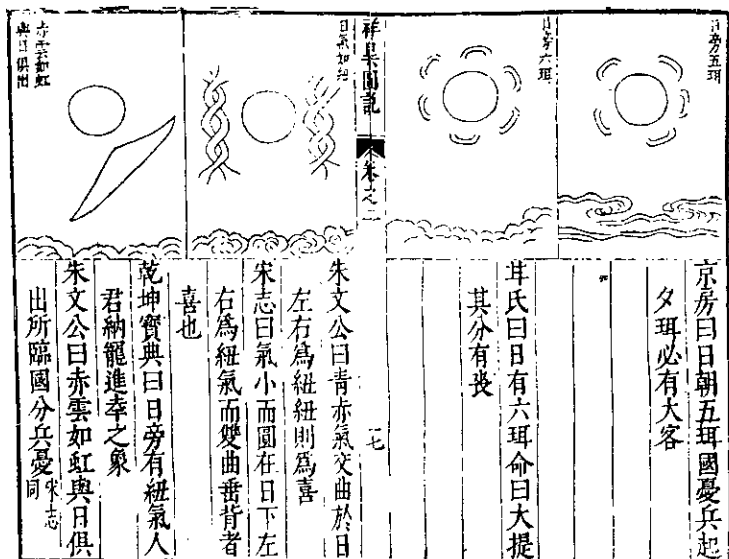 日旁五珥
京房曰日朝五珥國憂兵起
夕珥必有大客
日旁六珥
甘氏曰日有六珥命曰大提
其分有喪
祥異圖說
卷之二
十七
日氣如紐
朱文公曰青赤氣交曲於日
左右爲紐紐則爲喜
宋志曰氣小而圓在日下左
右爲紐氣而雙曲垂背者
喜也
乾坤寶典曰日旁有紐氣人
君納寵進幸之象
赤雲如虹
與日俱出
朱文公曰赤雲如虹與日俱
出所臨國分兵憂宋志同